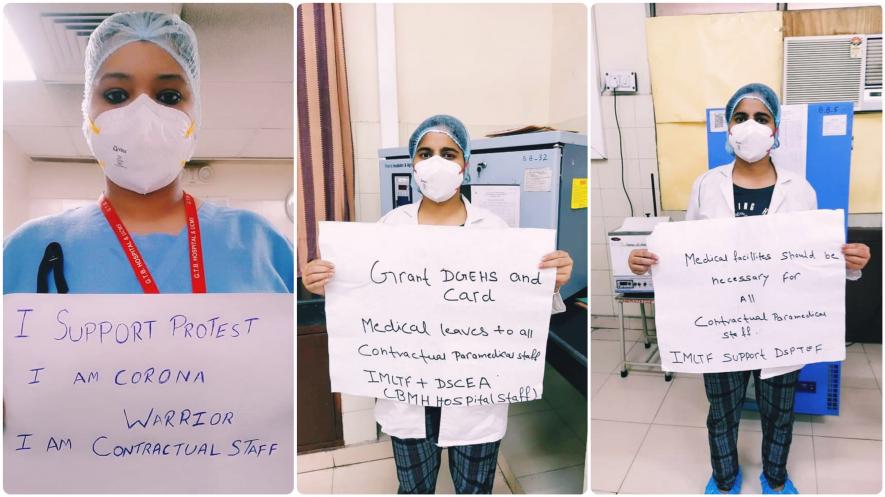 G.T.B HOSPITAL & UCMS
G.T.B HOSPITAL & UCMS
I SUPPORT PROTEST
I AM CORONA
WARRIOR
I AM CONTRACTUAL STAFF
BB-32
Grant DGEHS and
Card
Medical leaves to all
Contractual Paramedical staff
IMLTF + DSCEA
CBMH HOSPITAL (staff)
B.B.5
Medical facilites should be
necessary for
All
Contractual Paramedical
staff.
IMLTF SUPPORT DSPTEF